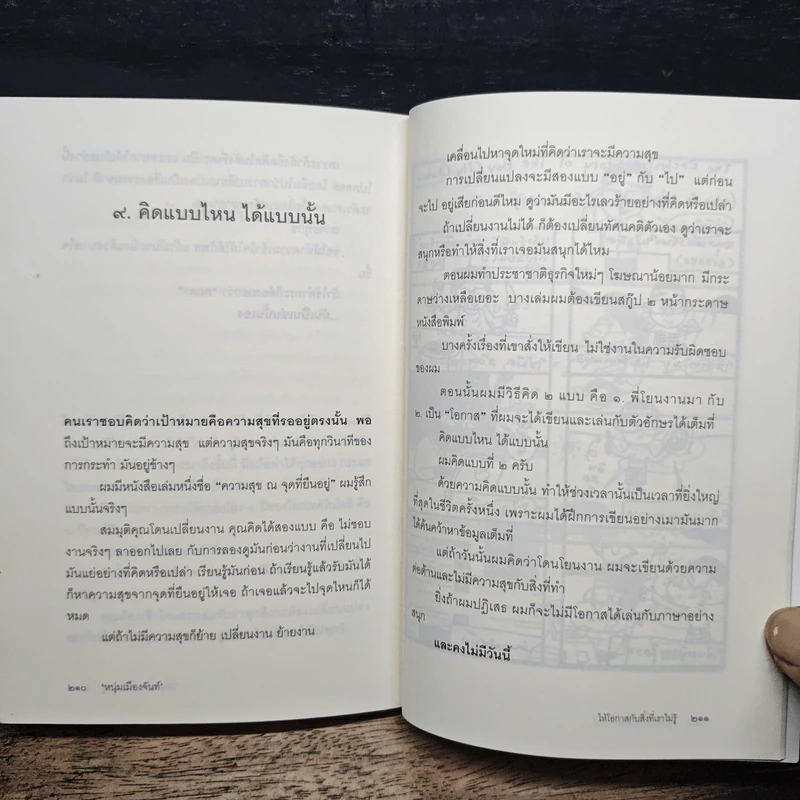 ๙. คิดแบบไหน ได้แบบนั้น
คนเราชอบคิดว่าเป้าหมายคือความสุขที่รออยู่ตรงนั้น พอ
ถึงเป้าหมายจะมีความสุข แต่ความสุขจริงๆ มันคือทุกวินาทีของ
การกระทำ มันอยู่ข้างๆ
ผมมีหนังสือเล่มหนึ่งชื่อ “ความสุข ณ จุดที่ยืนอยู่” ผมรู้สึก
แบบนั้นจริงๆ
สมมุติคุณโดนเปลี่ยนงาน คุณคิดได้สองแบบ คือ ไม่ชอบ
งานจริงๆ ลาออกไปเลย กับการลองดูมันก่อนว่างานที่เปลี่ยนไป
มันแย่อย่างที่คิดหรือเปล่า เรียนรู้มันก่อน ถ้าเรียนรู้แล้วรับมันได้
ก็หาความสุขจากจุดที่ยืนอยู่ให้เจอ ถ้าเจอแล้วจะไปจุดไหนก็ได้
หมด
แต่ถ้าไม่มีความสุขก็ย้าย เปลี่ยนงาน ย้ายงาน
๒๑๐ 'หนุ่มเมืองจันท์'
เคลื่อนไปหาจุดใหม่ที่คิดว่าเราจะมีความสุข
การเปลี่ยนแปลงจะมีสองแบบ “อยู่” กับ “ไป” แต่ก่อน
จะไป อยู่เสียก่อนดีไหม ดูว่ามันมีอะไรเลวร้ายอย่างที่คิดหรือเปล่า
ถ้าเปลี่ยนงานไม่ได้ ก็ต้องเปลี่ยนทัศนคติตัวเอง ดูว่าเราจะ
สนุกหรือทำให้สิ่งที่เราเจอมันสนุกได้ไหม
ตอนผมทำประชาชาติธุรกิจใหม่ๆ โฆษณาน้อยมาก มีกระ
ดาษว่างเหลือเยอะ บางเล่มผมต้องเขียนสกู๊ป ๒ หน้ากระดาษ
หนังสือพิมพ์
บางครั้งเรื่องที่เขาสั่งให้เขียน ไม่ใช่งานในความรับผิดชอบ
ของผม
ตอนนั้นผมมีวิธีคิด ๒ แบบ คือ ๑. พี่โยนงานมา กับ
๒. เป็น “โอกาส” ที่ผมจะได้เขียนและเล่นกับตัวอักษรได้เต็มที่
คิดแบบไหน ได้แบบนั้น
ผมคิดแบบที่ ๒ ครับ
ด้วยความคิดแบบนั้น ทำให้ช่วงเวลานั้นเป็นเวลาที่ยิ่งใหญ่
ที่สุดในชีวิตครั้งหนึ่ง เพราะผมได้ฝึกการเขียนอย่างเมามันมาก
ได้ค้นคว้าหาข้อมูลเต็มที่
แต่ถ้าวันนั้นผมคิดว่าโดนโยนงาน ผมจะเขียนด้วยความ
ต่อต้านและไม่มีความสุขกับสิ่งที่ทำ
ยิ่งถ้าผมปฏิเสธ ผมก็จะไม่มีโอกาสได้เล่นกับภาษาอย่าง
สนุก
และคงไม่มีวันนี้
ให้โอกาสกับสิ่งที่เราไม่รู้ ๒๑๑